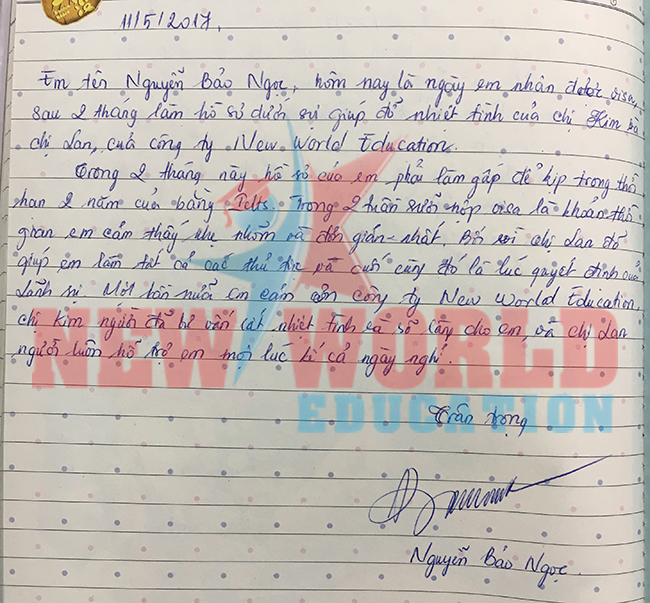 11/5/2017.
Em tên Nguyễn Bảo Ngọc, hôm nay là ngày em nhận được visa,
sau 2 tháng làm hồ sơ dưới sự giúp đỡ nhiệt tình của chị Kim và
chị Lan, của công ty New World Education.
Trong 2 tháng này hồ sơ của em phải làm gấp để kịp trong thời
hạn 2 năm của bằng Ielts. Trong 2 tuần nộp visa là khoản thời
gian em cảm thấy nhẹ nhõm và đơn giản nhất. Bởi vì chị Lan đã
giúp em làm tất cả các thủ tục và cuối cùng đó là lúc quyết định của
Lãnh sự. Một lần nữa em cảm ơn công ty New World Education,
chị Kim người đã tư vấn rất nhiệt tình và lo lắng cho em, và chị Lan
người luôn hỗ trợ em mọi lúc kể cả ngày nghỉ.
NEW WORLD
EDUCATION
Trân trọng
Nguyễn Bảo Ngọc.